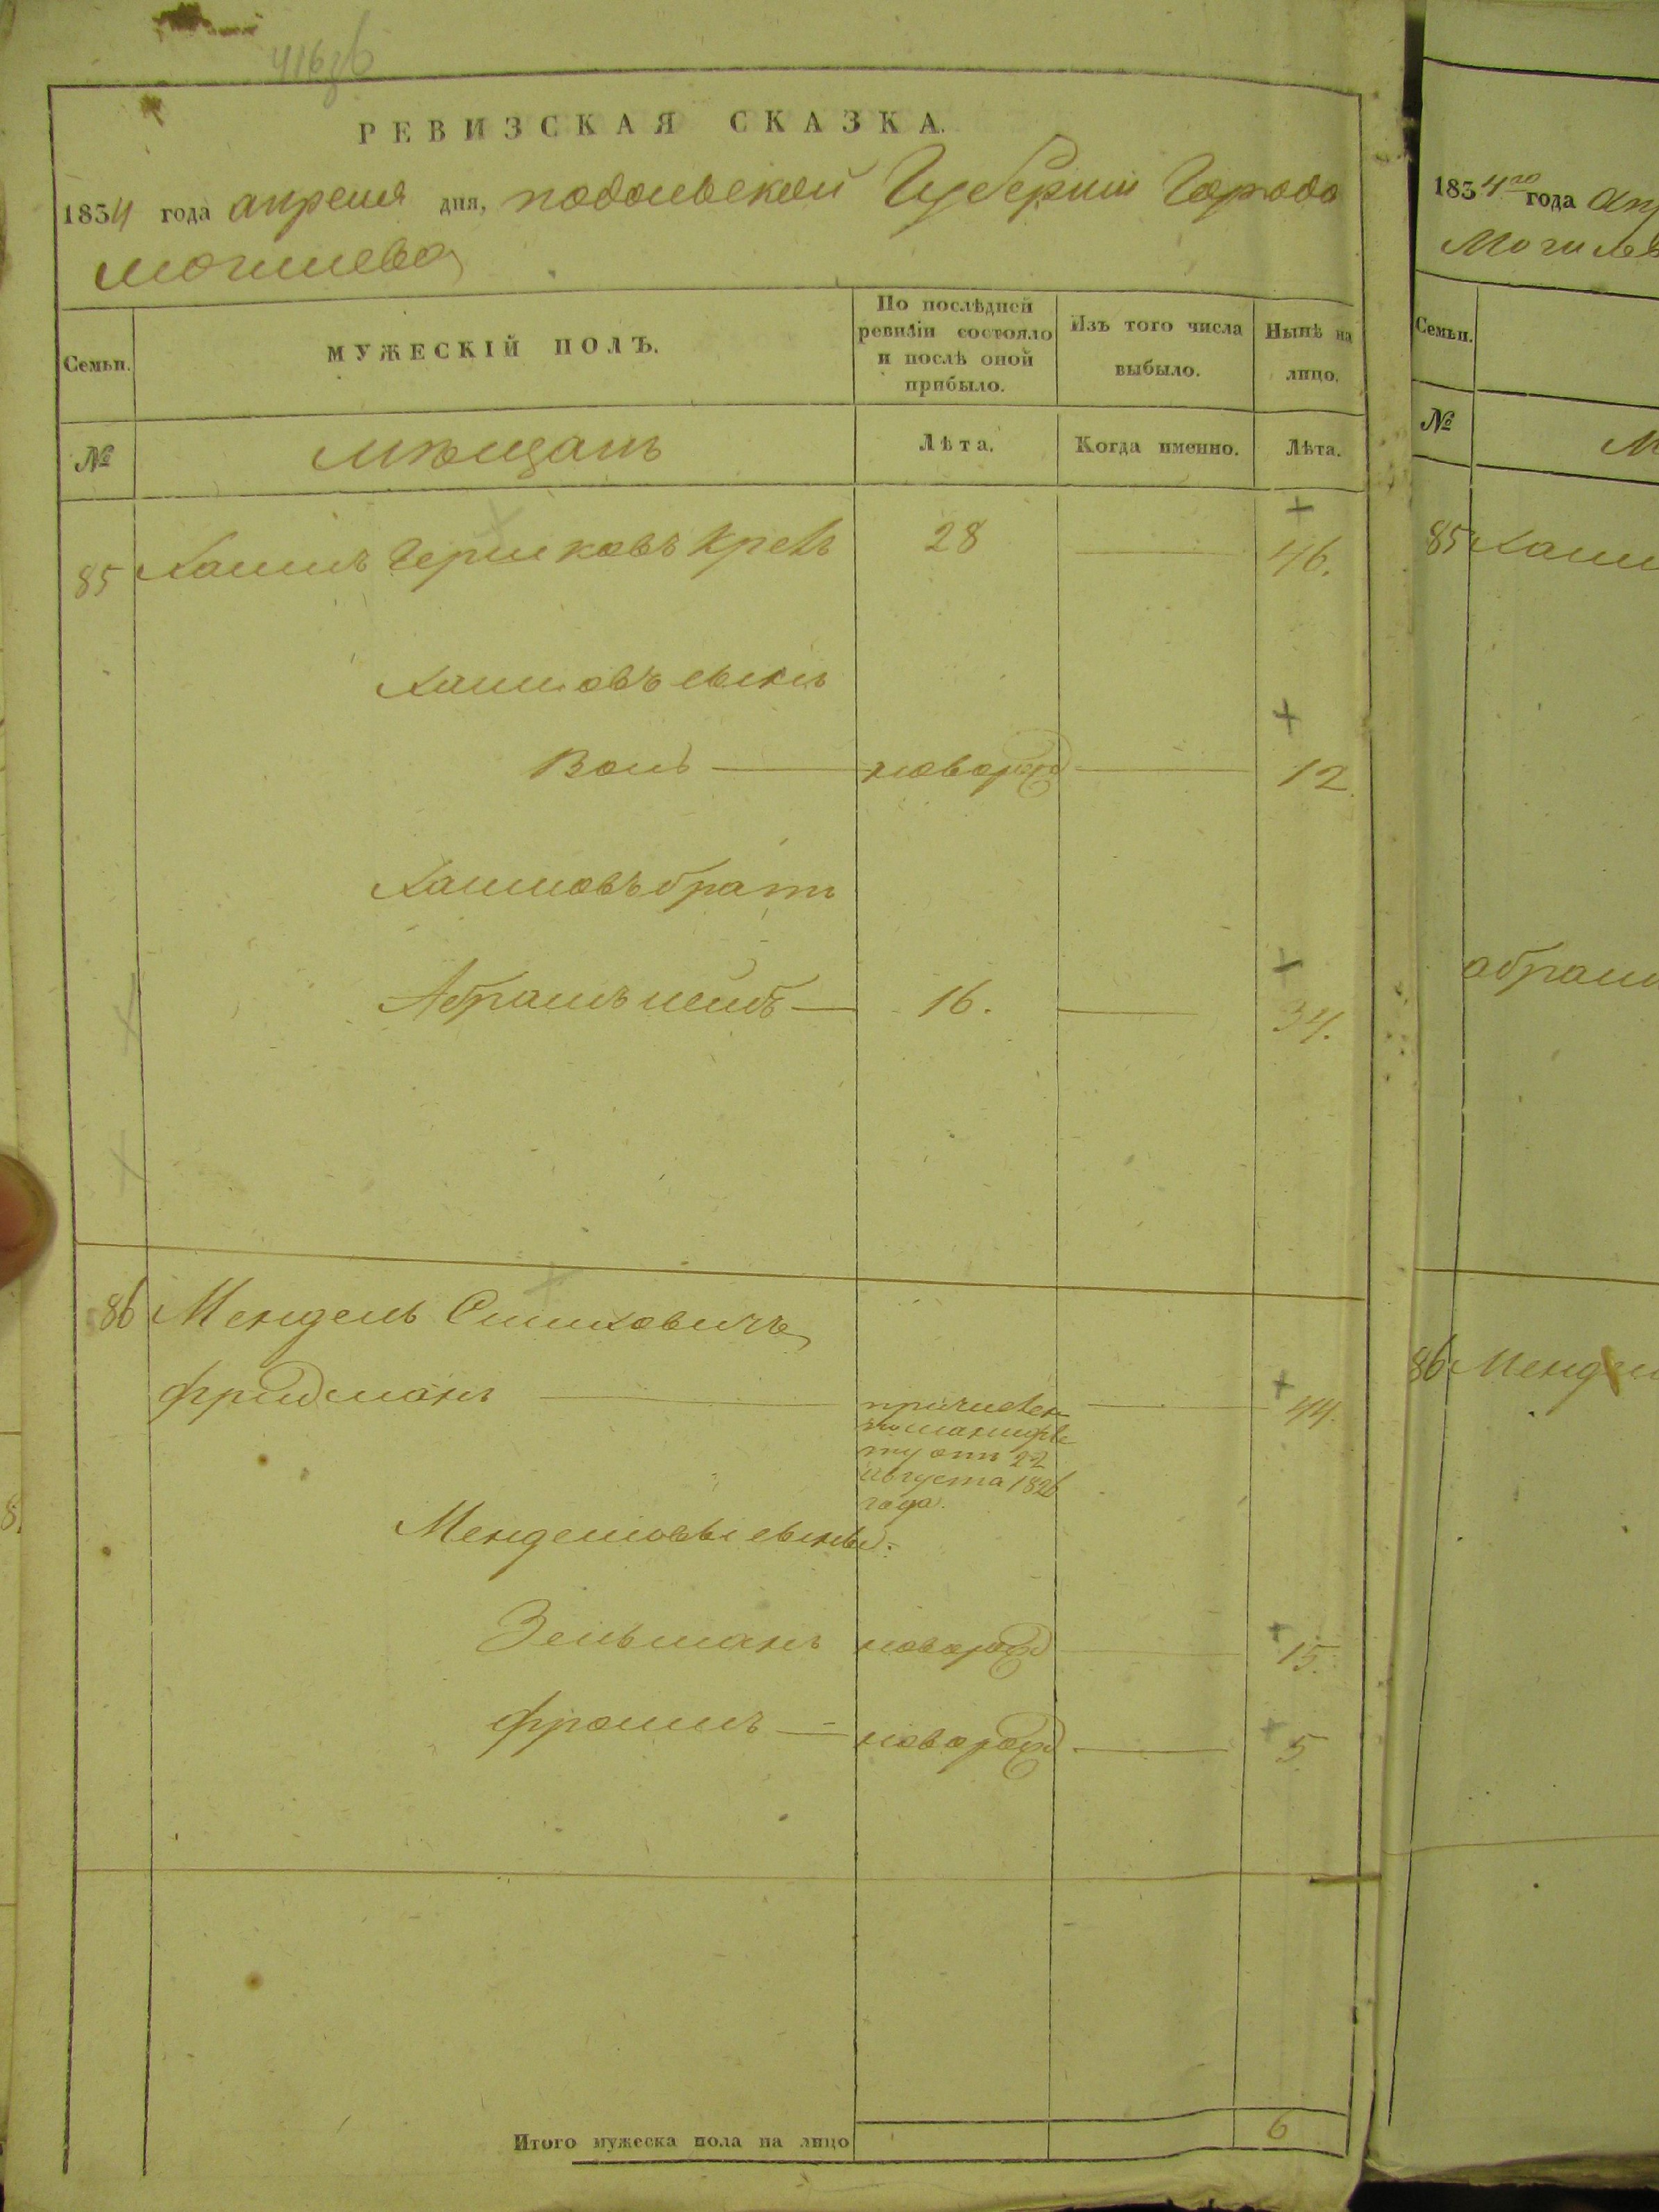 РЕВИЗСКАЯ СКАЗКА.
1834 года апреля дня, подольской Губернии Города
могилева
Семьи.
МУЖЕСКІЙ ПОЛЪ.
По послѣдней
ревизіи состояло
и послѣ оной
прибыло.
Изъ того числа
выбыло.
Нынѣ на
лицо.
№
мѣщанъ
Лѣта.
Когда именно.
Лѣта.
85 Хаимъ Гершковъ 28 46.
Хаимовъ сынъ
новорожд 12
Хаимовъ братъ
Абрамъ 16. 34.
86 Мендель
фридманъ 44.
ту отъ 22
августа 1826
года.
Менделювы сыны:
Зельманъ новорожд 15.
фроимъ новорожд 5
Итого мужеска пола на лицо 6
1834го года
Семьи.
№
85
86